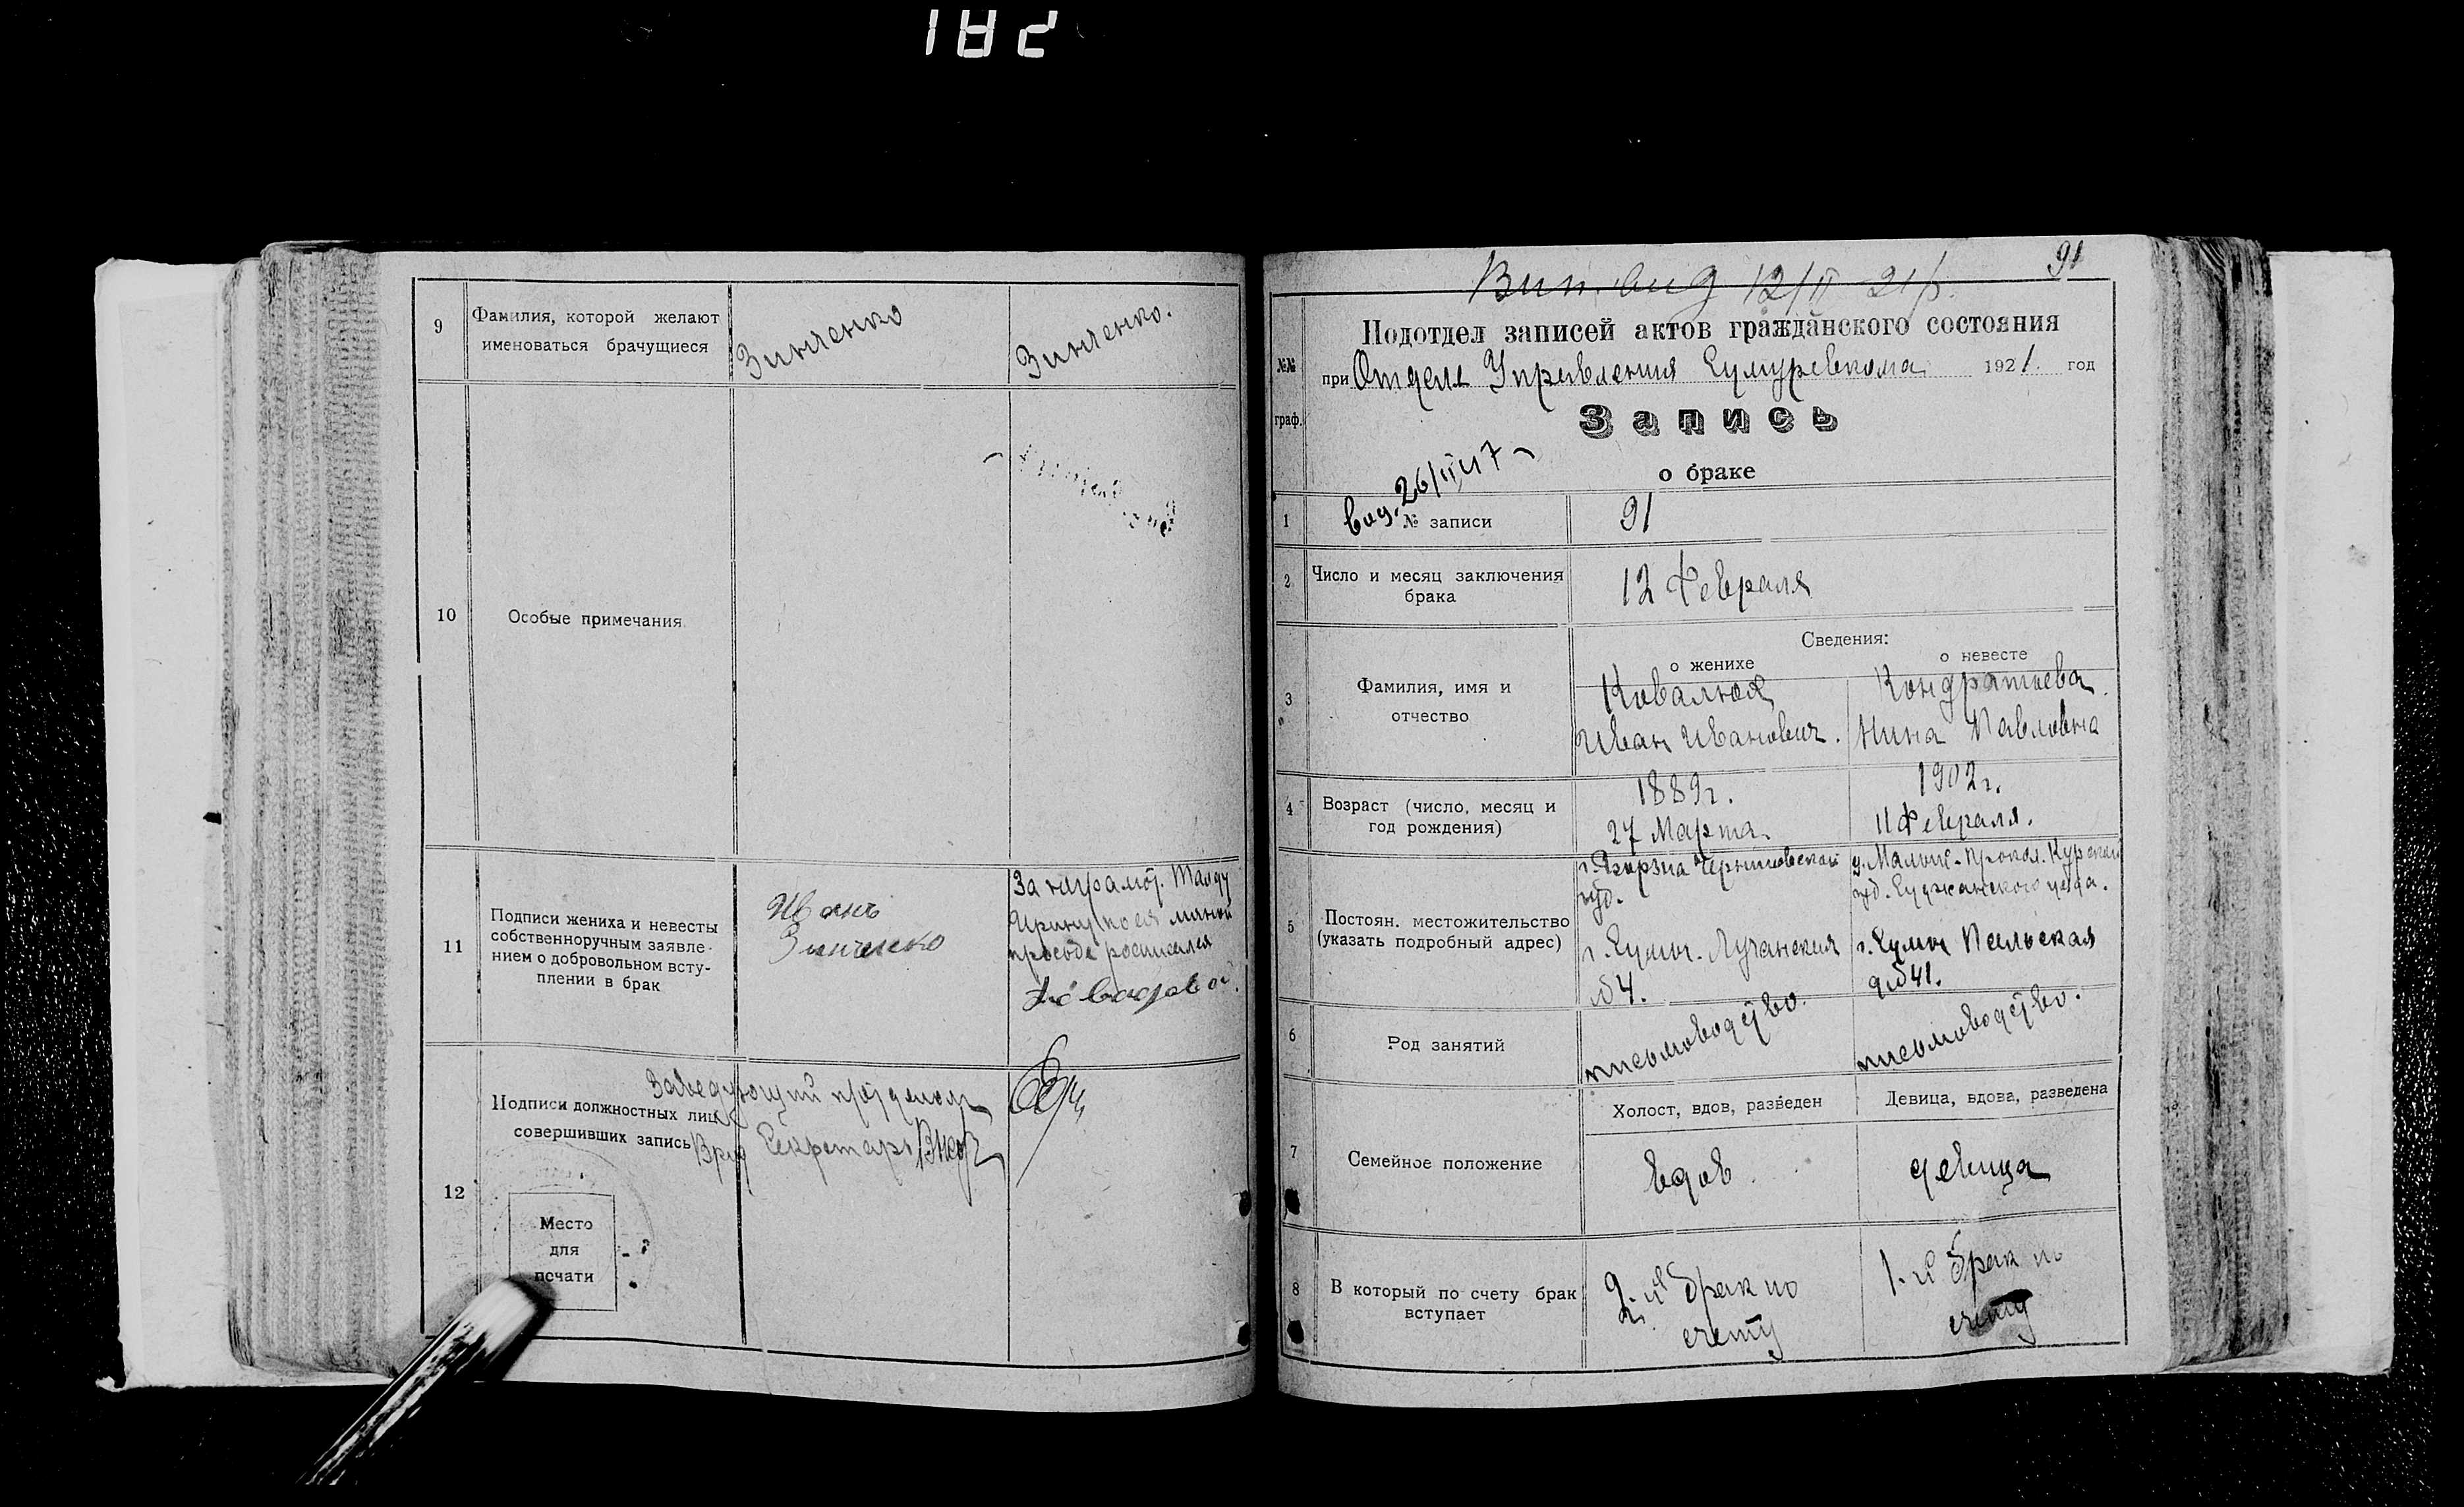 182
9
Фамилия, которой желают
именоваться брачущиеся
Зинченко
Зинченко.
10
Особые примечания
11
Подписи жениха и невесты
собственноручным заявле-
нием о добровольном всту-
плении в брак
Иванъ
Зинченко
За неграмот.
Ирину по ея личной
просьбе росписался
12
Заведующий п/отделом
Подписи должностных лиц
совершивших запись
Врид Секретарь
Место
для
печати
91
Вип. вид 12/II 21 р.
Подотдел записей актов гражданского состояния
№№
граф.
при Отделе Управления Сумуревкома 1921. год
Запись
о браке
вид. 26/II 47
1
№ записи
91
2
Число и месяц заключения
брака
12 Февраля
Сведения:
о женихе
о невесте
3
Фамилия, имя и
отчество
Иван Иванович.
Кондратьева
Нина Павловна
4
Возраст (число, месяц и
год рождения)
1889г.
27 Марта.
1902г.
11 Февраля.
5
Постоян. местожительство
(указать подробный адрес)
г. Борзна Черниговской
губ.
г. Сумы. Лучанская
№ 4.
Курской
губ. Суджанского уезда.
г. Сумы Псельская
д № 41.
6
Род занятий
письмоводство.
письмоводство.
7
Семейное положение
Холост, вдов, разведен
Девица, вдова, разведена
вдов.
девица
8
В который по счету брак
вступает
2-й брак по
счету
1-й брак по
счету